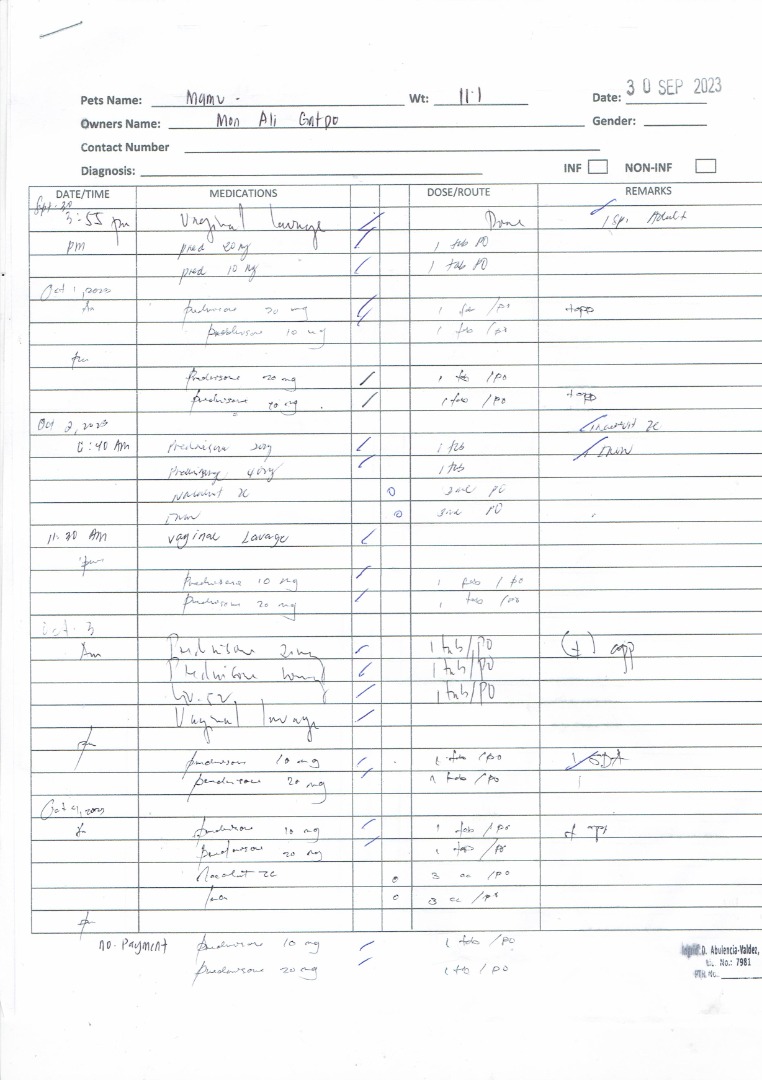 Pets Name: Mamu - Wt: 11.1 Date: 30 SEP 2023
Owners Name: Mon Ali Gatpo Gender:
Contact Number
Diagnosis: INF NON-INF
DATE/TIME MEDICATIONS DOSE/ROUTE REMARKS
Sept. 30
3:55 pm Vaginal lavage Done 1 spi Adult
pm pred 20 mg 1 tab PO
pred 10 mg 1 tab PO
Oct 1, 2023
Am prednisone 20 mg 1 tab /po +app
prednisone 10 mg 1 tab /po
pm
Prednisone 20 mg 1 tab /po
prednisone 10 mg 1 tab /po +app
Oct 2, 2023
6:40 AM Prednisone 20mg 1 tab
Prednisone 1 tab
3ml PO
3ml PO
11:20 AM vaginal Lavage
pm
Prednisone 10 mg 1 tab / po
prednisone 20 mg 1 tab /po
Oct. 3
Am Prednisone 20mg 1 tab/PO (+) app
Prednisone 10mg 1 tab/PO
Liv.52 1 tab/PO
Vaginal lavage
pm
prednisone 10 mg 1 tab /po 1 SDA
prednisone 20 mg 1 tab /po
Oct 4, 2023
prednisone 10 mg 1 tab /po + app
prednisone 20 mg 1 tab /po
3 cc /po
3 cc /po
pm
no. Payment prednisone 10 mg 1 tab /po
prednisone 20 mg 1 tb / po
D. Abuiencia-Valdez,
Lic. No.: 7981
PTR No.